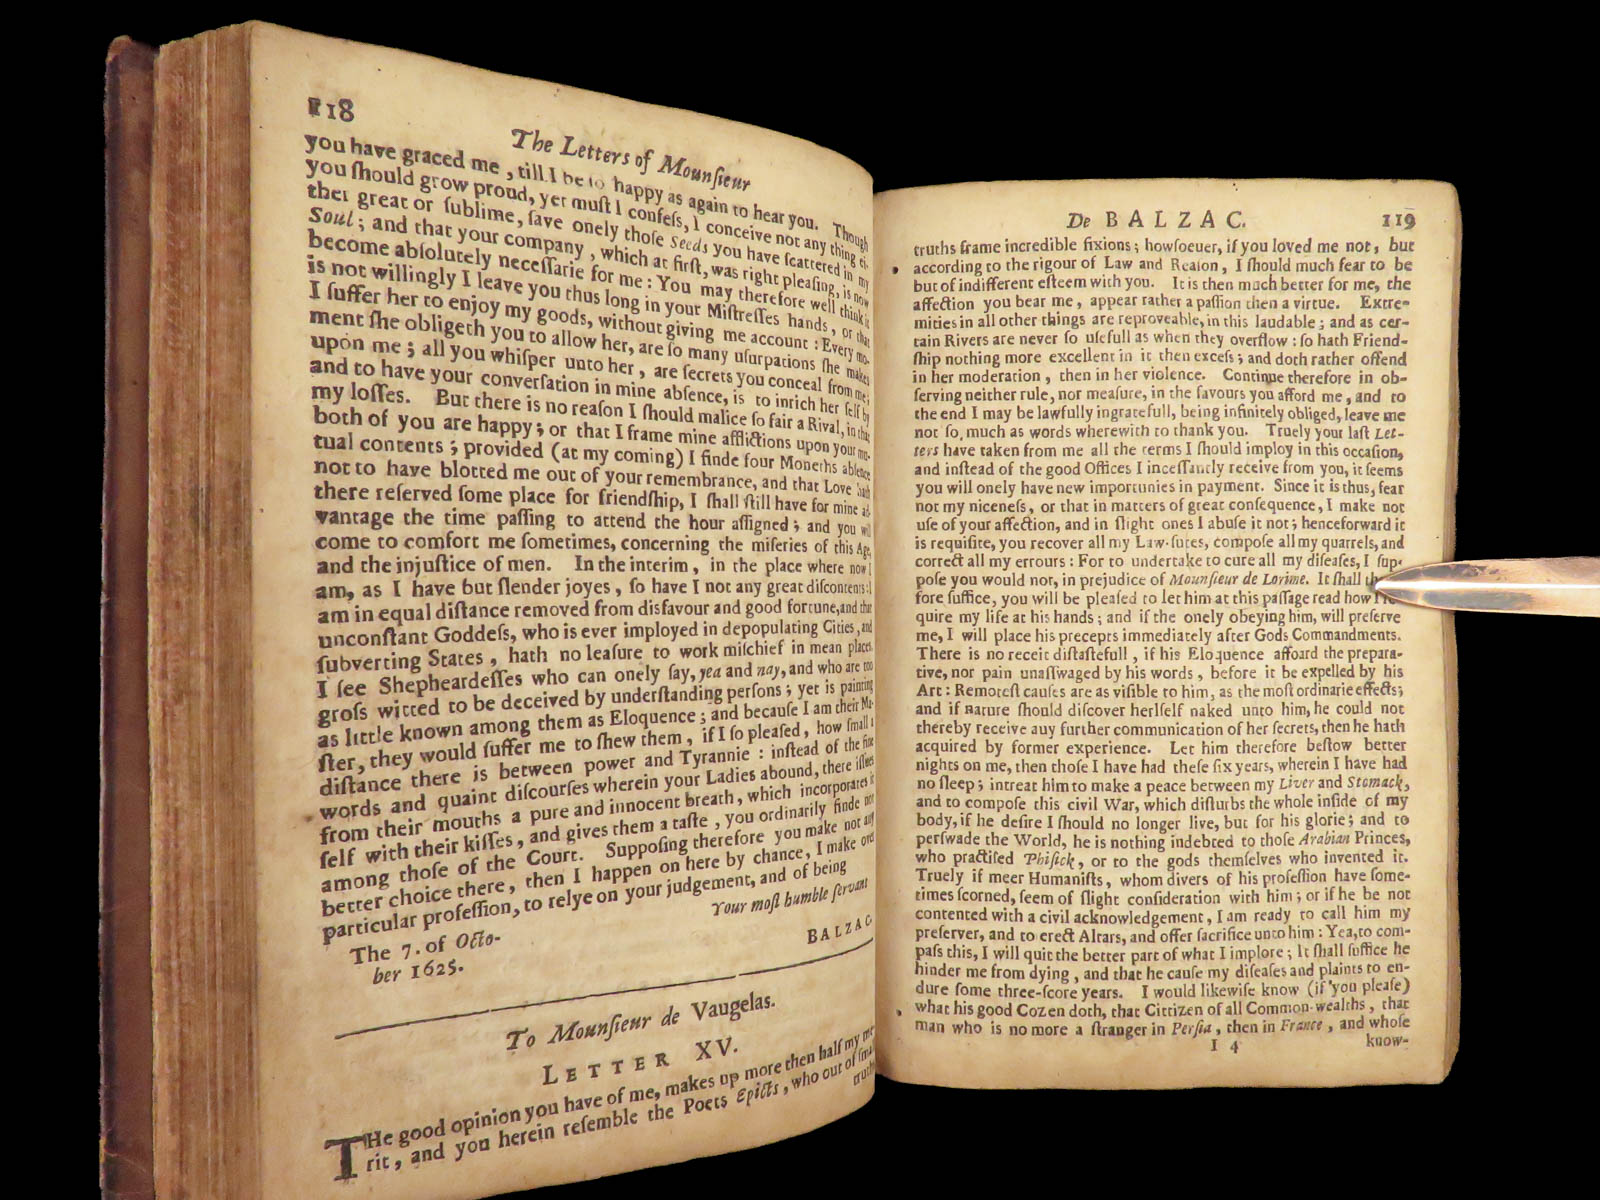 118
The Letters of Mounſieur
you have graced me, till I be ſo happy as again to hear you. Though
you ſhould grow proud, yet muſt I confeſs, I conceive not any thing ei-
ther great or ſublime, ſave onely thoſe Seeds you have ſcattered in my
Soul; and that your company, which at firſt, was right pleaſing, is now
become abſolutely neceſſarie for me: You may therefore well think it
is not willingly I leave you thus long in your Miſtreſſes hands, or that
I ſuffer her to enjoy my goods, without giving me account: Every mo-
ment ſhe obligeth you to allow her, are ſo many uſurpations ſhe makes
upon me; all you whiſper unto her, are ſecrets you conceal from me;
and to have your converſation in mine abſence, is to inrich her ſelf by
my loſſes. But there is no reaſon I ſhould malice ſo fair a Rival, in that
both of you are happy; or that I frame mine afflictions upon your mu-
tual contents; provided (at my coming) I finde four Moneths abſence
not to have blotted me out of your remembrance, and that Love hath
there reſerved ſome place for friendſhip, I ſhall ſtill have for mine ad-
vantage the time paſſing to attend the hour aſſigned; and you will
come to comfort me ſometimes, concerning the miſeries of this Age,
and the injuſtice of men. In the interim, in the place where now I
am, as I have but ſlender joyes, ſo have I not any great diſcontents: I
am in equal diſtance removed from disfavour and good fortune, and that
unconſtant Goddeſs, who is ever imployed in depopulating Cities, and
ſubverting States, hath no leaſure to work miſchief in mean places.
I ſee Shepheardeſſes who can onely ſay, yea and nay, and who are too
groſs witted to be deceived by underſtanding perſons; yet is painting
as little known among them as Eloquence; and becauſe I am their Ma-
ſter, they would ſuffer me to ſhew them, if I ſo pleaſed, how ſmall a
diſtance there is between power and Tyrannie: inſtead of the fine
words and quaint diſcourſes wherein your Ladies abound, there iſſues
from their mouths a pure and innocent breath, which incorporates it
ſelf with their kiſſes, and gives them a taſte, you ordinarily finde not
among thoſe of the Court. Suppoſing therefore you make not any
better choice there, then I happen on here by chance, I make over
particular profeſſion, to relye on your judgement, and of being
Your moſt humble ſervant
BALZAC.
The 7. of Octo-
ber 1625.
To Mounſieur de Vaugelas.
LETTER XV.
THe good opinion you have of me, makes up more then half my me-
rit, and you herein reſemble the Poets Epicts, who out of ſmall
truths
De BALZAC.
119
truths frame incredible fixions; howſoeuer, if you loved me not, but
according to the rigour of Law and Reaſon, I ſhould much fear to be
but of indifferent eſteem with you. It is then much better for me, the
affection you bear me, appear rather a paſſion then a virtue. Extre-
mities in all other things are reproveable, in this laudable; and as cer-
tain Rivers are never ſo uſefull as when they overflow: ſo hath Friend-
ſhip nothing more excellent in it then exceſs; and doth rather offend
in her moderation, then in her violence. Continue therefore in ob-
ſerving neither rule, nor meaſure, in the favours you afford me, and to
the end I may be lawfully ingratefull, being infinitely obliged, leave me
not ſo, much as words wherewith to thank you. Truely your laſt Let-
ters have taken from me all the terms I ſhould imploy in this occaſion,
and inſtead of the good Offices I inceſſantly receive from you, it ſeems
you will onely have new importunies in payment. Since it is thus, fear
not my niceneſs, or that in matters of great conſequence, I make not
uſe of your affection, and in ſlight ones I abuſe it not; henceforward it
is requiſite, you recover all my Law-ſutes, compoſe all my quarrels, and
correct all my errours: For to undertake to cure all my diſeaſes, I ſup-
poſe you would nor, in prejudice of Mounſieur de Lorime. It ſhall
fore ſuffice, you will be pleaſed to let him at this paſſage read how I re-
quire my life at his hands; and if the onely obeying him, will preſerve
me, I will place his precepts immediately after Gods Commandments.
There is no receit diſtaſtefull, if his Eloquence affoard the prepara-
tive, nor pain unaſſwaged by his words, before it be expelled by his
Art: Remoteſt cauſes are as viſible to him, as the moſt ordinarie effects;
and if nature ſhould diſcover herſelf naked unto him, he could not
thereby receive auy further communication of her ſecrets, then he hath
acquired by former experience. Let him therefore beſtow better
nights on me, then thoſe I have had theſe ſix years, wherein I have had
no ſleep; intreat him to make a peace between my Liver and Stomack,
and to compoſe this civil War, which diſturbs the whole inſide of my
body, if he deſire I ſhould no longer live, but for his glorie; and to
perſwade the World, he is nothing indebted to thoſe Arabian Princes,
who practiſed Phiſick, or to the gods themſelves who invented it.
Truely if meer Humaniſts, whom divers of his profeſſion have ſome-
times ſcorned, ſeem of ſlight conſideration with him; or if he be not
contented with a civil acknowledgement, I am ready to call him my
preſerver, and to erect Altars, and offer ſacrifice unto him: Yea, to com-
paſs this, I will quit the better part of what I implore; It ſhall ſuffice he
hinder me from dying, and that he cauſe my diſeaſes and plaints to en-
dure ſome three-ſcore years. I would likewiſe know (if you pleaſe)
what his good Cozen doth, that Cittizen of all Common-wealths, that
man who is no more a ſtranger in Perſia, then in France, and whoſe
I 4
know-